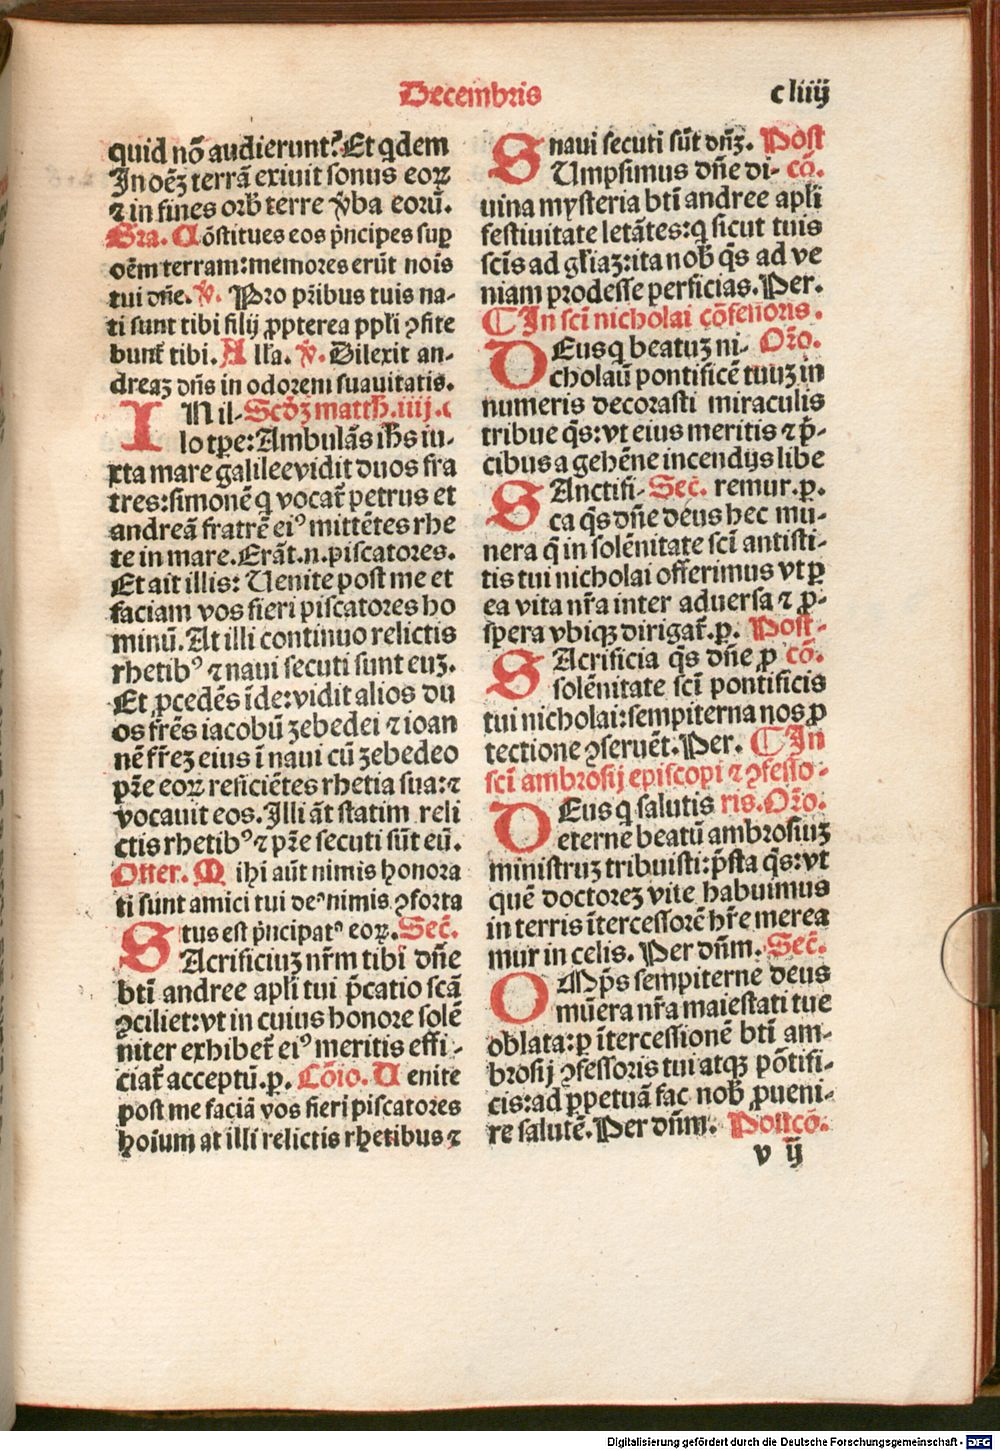 Decembris
cliiij
quid nō audierunt? Et qdem
In oēꝫ terrā exiuit sonus eoꝝ
⁊ in fines orb̄ terre v̄ba eorū.
Gra. Cōstitues eos p̄ncipes suꝑ
oēm terram: memores erūt nois
tui dn̄e. ℣. Pro pr̄ibus tuis na-
ti sunt tibi filij ꝓpterea ppl̄i ꝯfite
bunt̄ tibi. Alľa. ℣. Dilexit an-
dreaꝫ dn̄s in odorem suauitatis.
IN il- Scd̄ꝫ matth. iiij. c
lo tꝑe: Ambulās ih̄s iu-
xta mare galilee vidit duos fra
tres: simonē q vocat̄ petrus et
andreā fratrē eiꝰ mittētes rhe
te in mare. Erāt. n. piscatores.
Et ait illis: Uenite post me et
faciam vos fieri piscatores ho
minū. At illi continuo relictis
rhetibꝰ ⁊ naui secuti sunt euꝫ.
Et ꝓcedēs īde: vidit alios du
os fr̄es iacobū zebedei ⁊ ioan
nē fr̄eꝫ eius ī naui cū zebedeo
pr̄e eoꝝ reficiētes rhetia sua: ⁊
vocauit eos. Illi āt statim reli
ctis rhetibꝰ ⁊ pr̄e secuti sūt eū.
Offer. Mihi aūt nimis honora
ti sunt amici tui deꝰ nimis ꝯforta
tus est p̄ncipatꝰ eoꝝ. Sec̄.
SAcrificiuꝫ nr̄m tibi dn̄e
bt̄i andree apl̄i tui p̄catio scā
ꝯciliet: vt in cuius honore solē
niter exhibet̄ eiꝰ meritis effi-
ciat̄ acceptū. ꝑ. Cōio. Uenite
post me faciā vos fieri piscatores
hoīum at illi relictis rhetibus ⁊
naui secuti sūt dn̄ꝫ. Post
SUmpsimus dn̄e di- cō.
uina mysteria bt̄i andree apl̄i
festiuitate letātes: q sicut tuis
scīs ad gl̄iaꝫ: ita nob̄ q̄s ad ve
niam prodesse perficias. Per.
¶ In scī nicholai cōfessoris.
DEus q beatuꝫ ni- Or̄o.
cholaū pontificē tuuꝫ in
numeris decorasti miraculis
tribue q̄s: vt eius meritis ⁊ p̄-
cibus a gehēne incendijs libe
SAnctifi- Sec̄. remur. p.
ca q̄s dn̄e deus hec mu-
nera q̄ in solēnitate scī antisti-
tis tui nicholai offerimus vt ꝑ
ea vita nr̄a inter aduersa ⁊ ꝓ-
spera vbiqꝫ dirigat̄. p. Post-
SAcrificia q̄s dn̄e ꝓ cō.
solēnitate scī pontificis
tui nicholai: sempiterna nos ꝓ
tectione ꝯseruēt. Per. ¶ In
scī ambrosij episcopi ⁊ ꝯfesso-
DEus q salutis ris. Or̄o.
eterne beatū ambrosiuꝫ
ministruꝫ tribuisti: p̄sta q̄s: vt
quē doctoreꝫ vite habuimus
in terris ītercessorē hr̄e merea
mur in celis. Per dn̄m. Sec̄.
OMp̄s sempiterne deus
mūera nr̄a maiestati tue
oblata: ꝑ ītercessionē bt̄i am-
brosij ꝯfessoris tui atqꝫ pōtifi-
cis: ad ꝑpetuā fac nob̄ ꝓueni-
re salutē. Per dn̄m. Postcō.
v ij
Digitalisierung gefördert durch die Deutsche Forschungsgemeinschaft - DFG